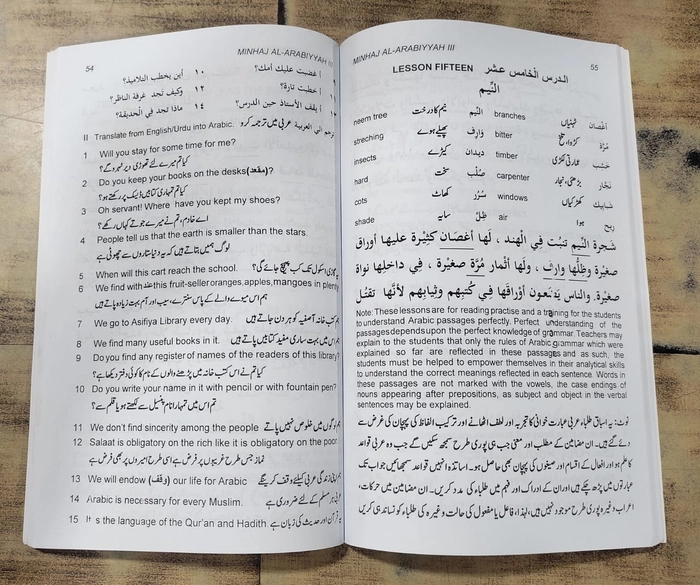 54
MINHAJ AL-ARABIYYAH III
غضبت عليك أمك؟ ١٠ أين يخطب التلاميذ؟
خطبت تارة؟ ١٢ وكيف تجد غرفة الناظر؟
يقف الأستاذ حين الدرس؟ ١٤ ماذا تجد في الحديقة؟
II Translate from English/Urdu into Arabic. عربی میں ترجمہ کرو
1 Will you stay for some time for me?
کیا تم میرے لئے تھوڑی دیر ٹھہرو گے؟
2 Do you keep your books on the desks(مقعد)?
کیا تم تمہاری کتابیں ڈیسک پر رکھتے ہو؟
3 Oh servant! Where have you kept my shoes?
اے خادم، تم نے میرے جوتے کہاں رکھے؟
4 People tell us that the earth is smaller than the stars.
لوگ ہمیں بتاتے ہیں کہ یہ دنیا ستاروں سے چھوٹی ہے
5 When will this cart reach the school. گاڑی اسکول تک کب پہنچ جائے گی؟
6 We find with عند this fruit-seller oranges, apples, mangoes in plenty
ہم اس میوے والے کے پاس سنترے، سیب اور آم بہت زیادہ پاتے ہیں
7 We go to Asifiya Library every day. ہم کتب خانہ آصفیہ کو ہر دن جاتے ہیں
8 We find many useful books in it. ہم اس میں بہت ساری مفید کتابیں پاتے ہیں
9 Do you find any register of names of the readers of this library?
کیا تم نے اس کتب خانہ میں پڑھنے والوں کے نام کا کوئی دفتر دیکھا ہے؟
10 Do you write your name in it with pencil or with fountain pen?
تم اس میں تمہارا نام پنسل سے لکھتے ہو یا قلم سے؟
11 We don't find sincerity among the people لوگوں میں خلوص نہیں پاتے
12 Salaat is obligatory on the rich like it is obligatory on the poor.
نماز جس طرح غریبوں پر فرض ہے اسی طرح امیروں پر بھی فرض ہے
13 We will endow (وقف) our life for Arabic ہم اپنی زندگی عربی کیلئے وقف کریں گے
14 Arabic is necessary for every Muslim. عربی ہر مسلم کے لئے ضروری ہے
15 It s the language of the Qur'an and Hadith یہ قرآن اور حدیث کی زبان ہے
MINHAJ AL-ARABIYYAH III
55
LESSON FIFTEEN الدرس الخامس عشر
النِّيم
neem tree نیم کا درخت النِّيم branches ٹہنیاں أغصان
streching پھیلے ہوے وَارِف bitter کڑوا، تلخ مُرَّة
insects کیڑے ديدان timber عمارتی لکڑی خشب
hard سخت صُلْب carpenter بڑھئی، نجار نجّار
cots کھاٹ سُرُر windows کھڑکیاں شبابيك
shade سایہ ظِلّ air ہوا ريح
شجرة النِّيم تنبُت فِي الْهند ، لَها أغصَان كثِيْرة عليها أوراق
صغيْرة وظِلُّها وارِف ، ولَها أثمار مُرَّة صغيْرة ، في داخلها نواة
صغيْرة. والناس يَضَعون أوراقَها فِي كُتبِهم وثيابِهم لأنَّها تقتُل
Note: These lessons are for reading practise and a training for the students
to understand Arabic passages perfectly. Perfect understanding of the
passages depends upon the perfect knowledge of grammar. Teachers may
explain to the students that only the rules of Arabic grammar which were
explained so far are reflected in these passages and as such, the
students must be helped to empower themselves in their analytical skills
to understand the correct meanings reflected in each sentence. Words in
these passages are not marked with the vowels, the case endings of
nouns appearing after prepositions, as subject and object in the verbal
sentences may be explained.
نوٹ: یہ اسباق طلباء عربی عبارت خوانی کا تجربہ اور لطف اٹھانے اور ترکیب الفاظ کی پہچان کی غرض سے
دئے گئے ہیں۔ ان مضامین کے مطلب اور معنی جب ہی پوری طرح سمجھ سکیں گے جب وہ عربی قواعد
کا علم ہو اور افعال کے اقسام اور صیغوں کی پہچان بھی حاصل ہو۔ اساتذہ انہیں قواعد سمجھائیں جو اب تک
عبارتوں میں پڑھ چکے ہیں اور ان کے ادراک اور فہم میں طلباء کی مدد کریں۔ ان مضامین میں حرکات،
اعراب وغیرہ پوری طرح موجود نہیں ہیں، لہذا، فاعل یا مفعول کی حالت وغیرہ کی طلباء کو نشاندہی کریں